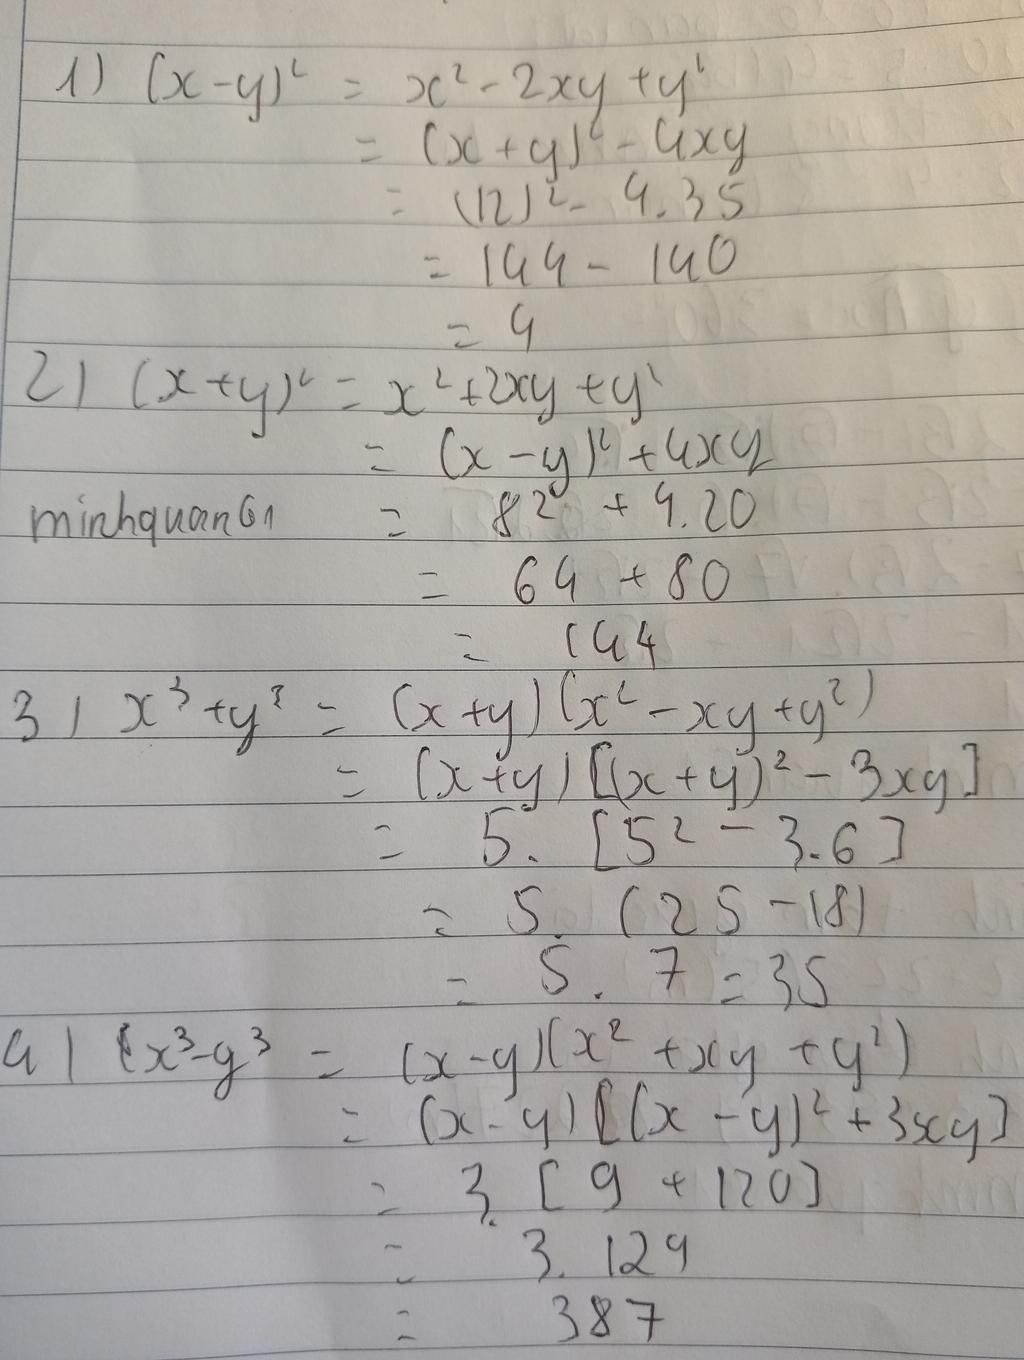 1) (x-y)² = x² - 2xy + y²
= (x+y)² - 4xy
= (12)² - 4.35
= 144 - 140
= 4
2) (x+y)² = x² + 2xy + y²
= (x-y)² + 4xy
minhquan61 = 8² + 4.20
= 64 + 80
= 144
3) x³ + y³ = (x+y)(x² - xy + y²)
= (x+y)[(x+y)² - 3xy]
= 5. [5² - 3.6]
= 5. (25 - 18)
= 5. 7 = 35
4) x³-y³ = (x-y)(x² + xy + y²)
= (x-y)[(x-y)² + 3xy]
= 3. [9 + 120]
= 3. 129
= 387